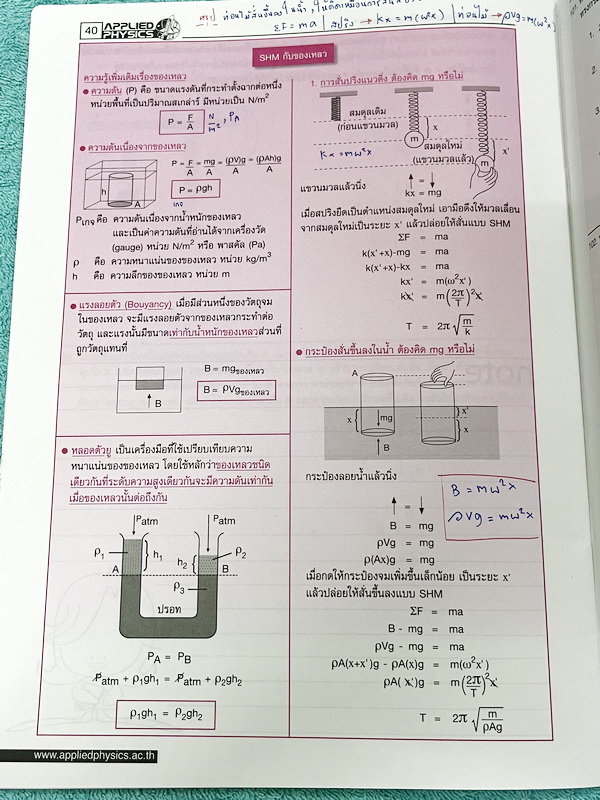 40 APPLIED PHYSICS
สรุป
ΣF = ma | สปริง → kx = m(ω²x) | ท่อนไม้ → ρVg = m(ω²x)
SHM กับของเหลว
ความรู้เพิ่มเติมเรื่องของเหลว
● ความดัน (P) คือ ขนาดแรงดันที่กระทำตั้งฉากต่อหนึ่ง
หน่วยพื้นที่เป็นปริมาณสเกล่าร์ มีหน่วยเป็น N/m²
P = F/A N/m² , PA
● ความดันเนื่องจากของเหลว
h
A
P = F/A = mg/A = (ρV)g/A = (ρAh)g/A
P = ρgh
เกจ
Pเกจ คือ ความดันเนื่องจากน้ำหนักของเหลว
และเป็นค่าความดันที่อ่านได้จากเครื่องวัด
(gauge) หน่วย N/m² หรือ พาสคัล (Pa)
ρ คือ ความหนาแน่นของของเหลว หน่วย kg/m³
h คือ ความลึกของของเหลว หน่วย m
● แรงลอยตัว (Bouyancy) เมื่อมีส่วนหนึ่งของวัตถุจม
ในของเหลว จะมีแรงลอยตัวจากของเหลวกระทำต่อ
วัตถุ และแรงนั้นมีขนาดเท่ากับน้ำหนักของเหลวส่วนที่
ถูกวัตถุแทนที่
B
B = mgของเหลว
B = ρVgของเหลว
● หลอดตัวยู เป็นเครื่องมือที่ใช้เปรียบเทียบความ
หนาแน่นของของเหลว โดยใช้หลักว่าของเหลวชนิด
เดียวกันที่ระดับความสูงเดียวกันจะมีความดันเท่ากัน
เมื่อของเหลวนั้นต่อถึงกัน
Patm Patm
ρ₁ h₁ h₂ ρ₂
A B
ρ₃
ปรอท
PA = PB
Patm + ρ₁gh₁ = Patm + ρ₂gh₂
ρ₁gh₁ = ρ₂gh₂
www.appliedphysics.ac.th
1. การสั่นปริงแนวดิ่ง ต้องคิด mg หรือไม่
สมดุลเดิม
(ก่อนแขวนมวล)
x
m
kx = mω²x
สมดุลใหม่
(แขวนมวลแล้ว)
x'
m
แขวนมวลแล้วนิ่ง
↑ = ↓
kx = mg
เมื่อสปริงยืดเป็นตำแหน่งสมดุลใหม่ เอามือดึงให้มวลเลื่อน
จากสมดุลใหม่เป็นระยะ x' แล้วปล่อยให้สั่นแบบ SHM
ΣF = ma
k(x'+x)-mg = ma
k(x'+x)-kx = ma
kx' = m(ω²x')
kx' = m(2π/T)²x'
T = 2π√(m/k)
● กระป๋องสั่นขึ้นลงในน้ำ ต้องคิด mg หรือไม่
A
x
mg
B
x'
x
กระป๋องลอยน้ำแล้วนิ่ง
B = mω²x
ρVg = mω²x
↑ = ↓
B = mg
ρVg = mg
ρ(Ax)g = mg
เมื่อกดให้กระป๋องจมเพิ่มขึ้นเล็กน้อย เป็นระยะ x'
แล้วปล่อยให้สั่นขึ้นลงแบบ SHM
ΣF = ma
B - mg = ma
ρVg - mg = ma
ρA(x+x')g - ρA(x)g = m(ω²x')
ρA( x')g = m(2π/T)²x'
T = 2π√(m/ρAg)